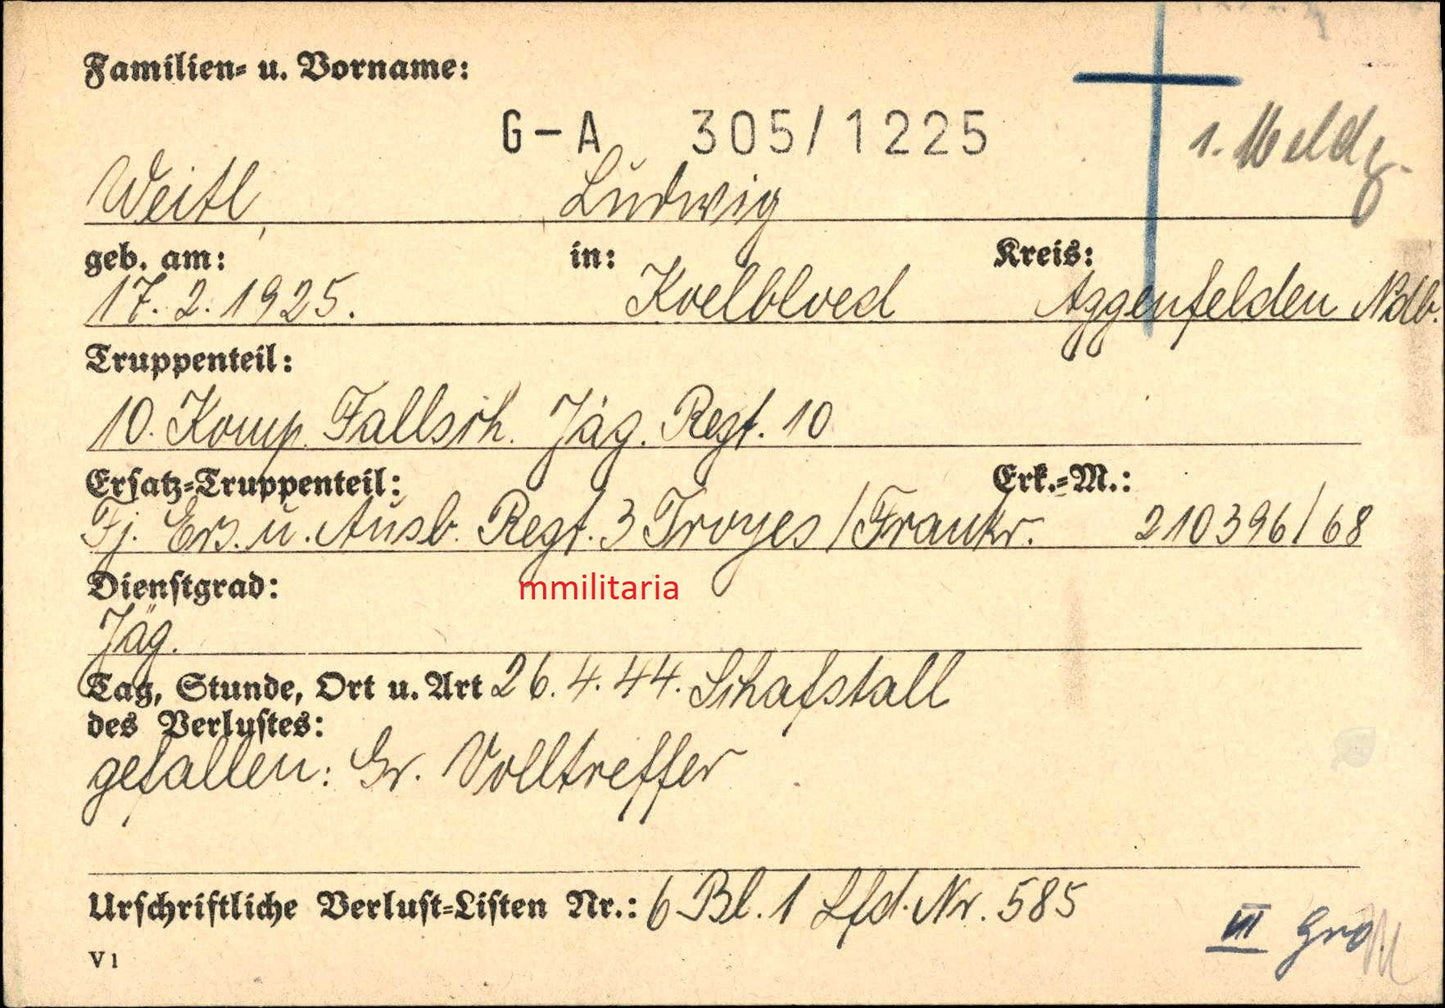 Familien- u. Vorname:
G-A 305/1225
1. Meldg.
Weitl, Ludwig
geb. am: in: Kreis:
17.2.1925. Koelbloed Aggenfelden Ndb.
Truppenteil:
10. Komp. Fallsch. Jäg. Regt. 10
Ersatz-Truppenteil: Erk.-M.:
Fj. Ers. u. Ausb. Regt. 3 Troyes/Frankr. 210396/68
Dienstgrad:
mmilitaria
Jäg.
Tag, Stunde, Ort u. Art 26.4.44. Schafstall
des Verlustes:
gefallen: Gr. Volltreffer
Urschriftliche Verlust-Listen Nr.: 6 Bl. 1 Lfd. Nr. 585
V1
VII Gro